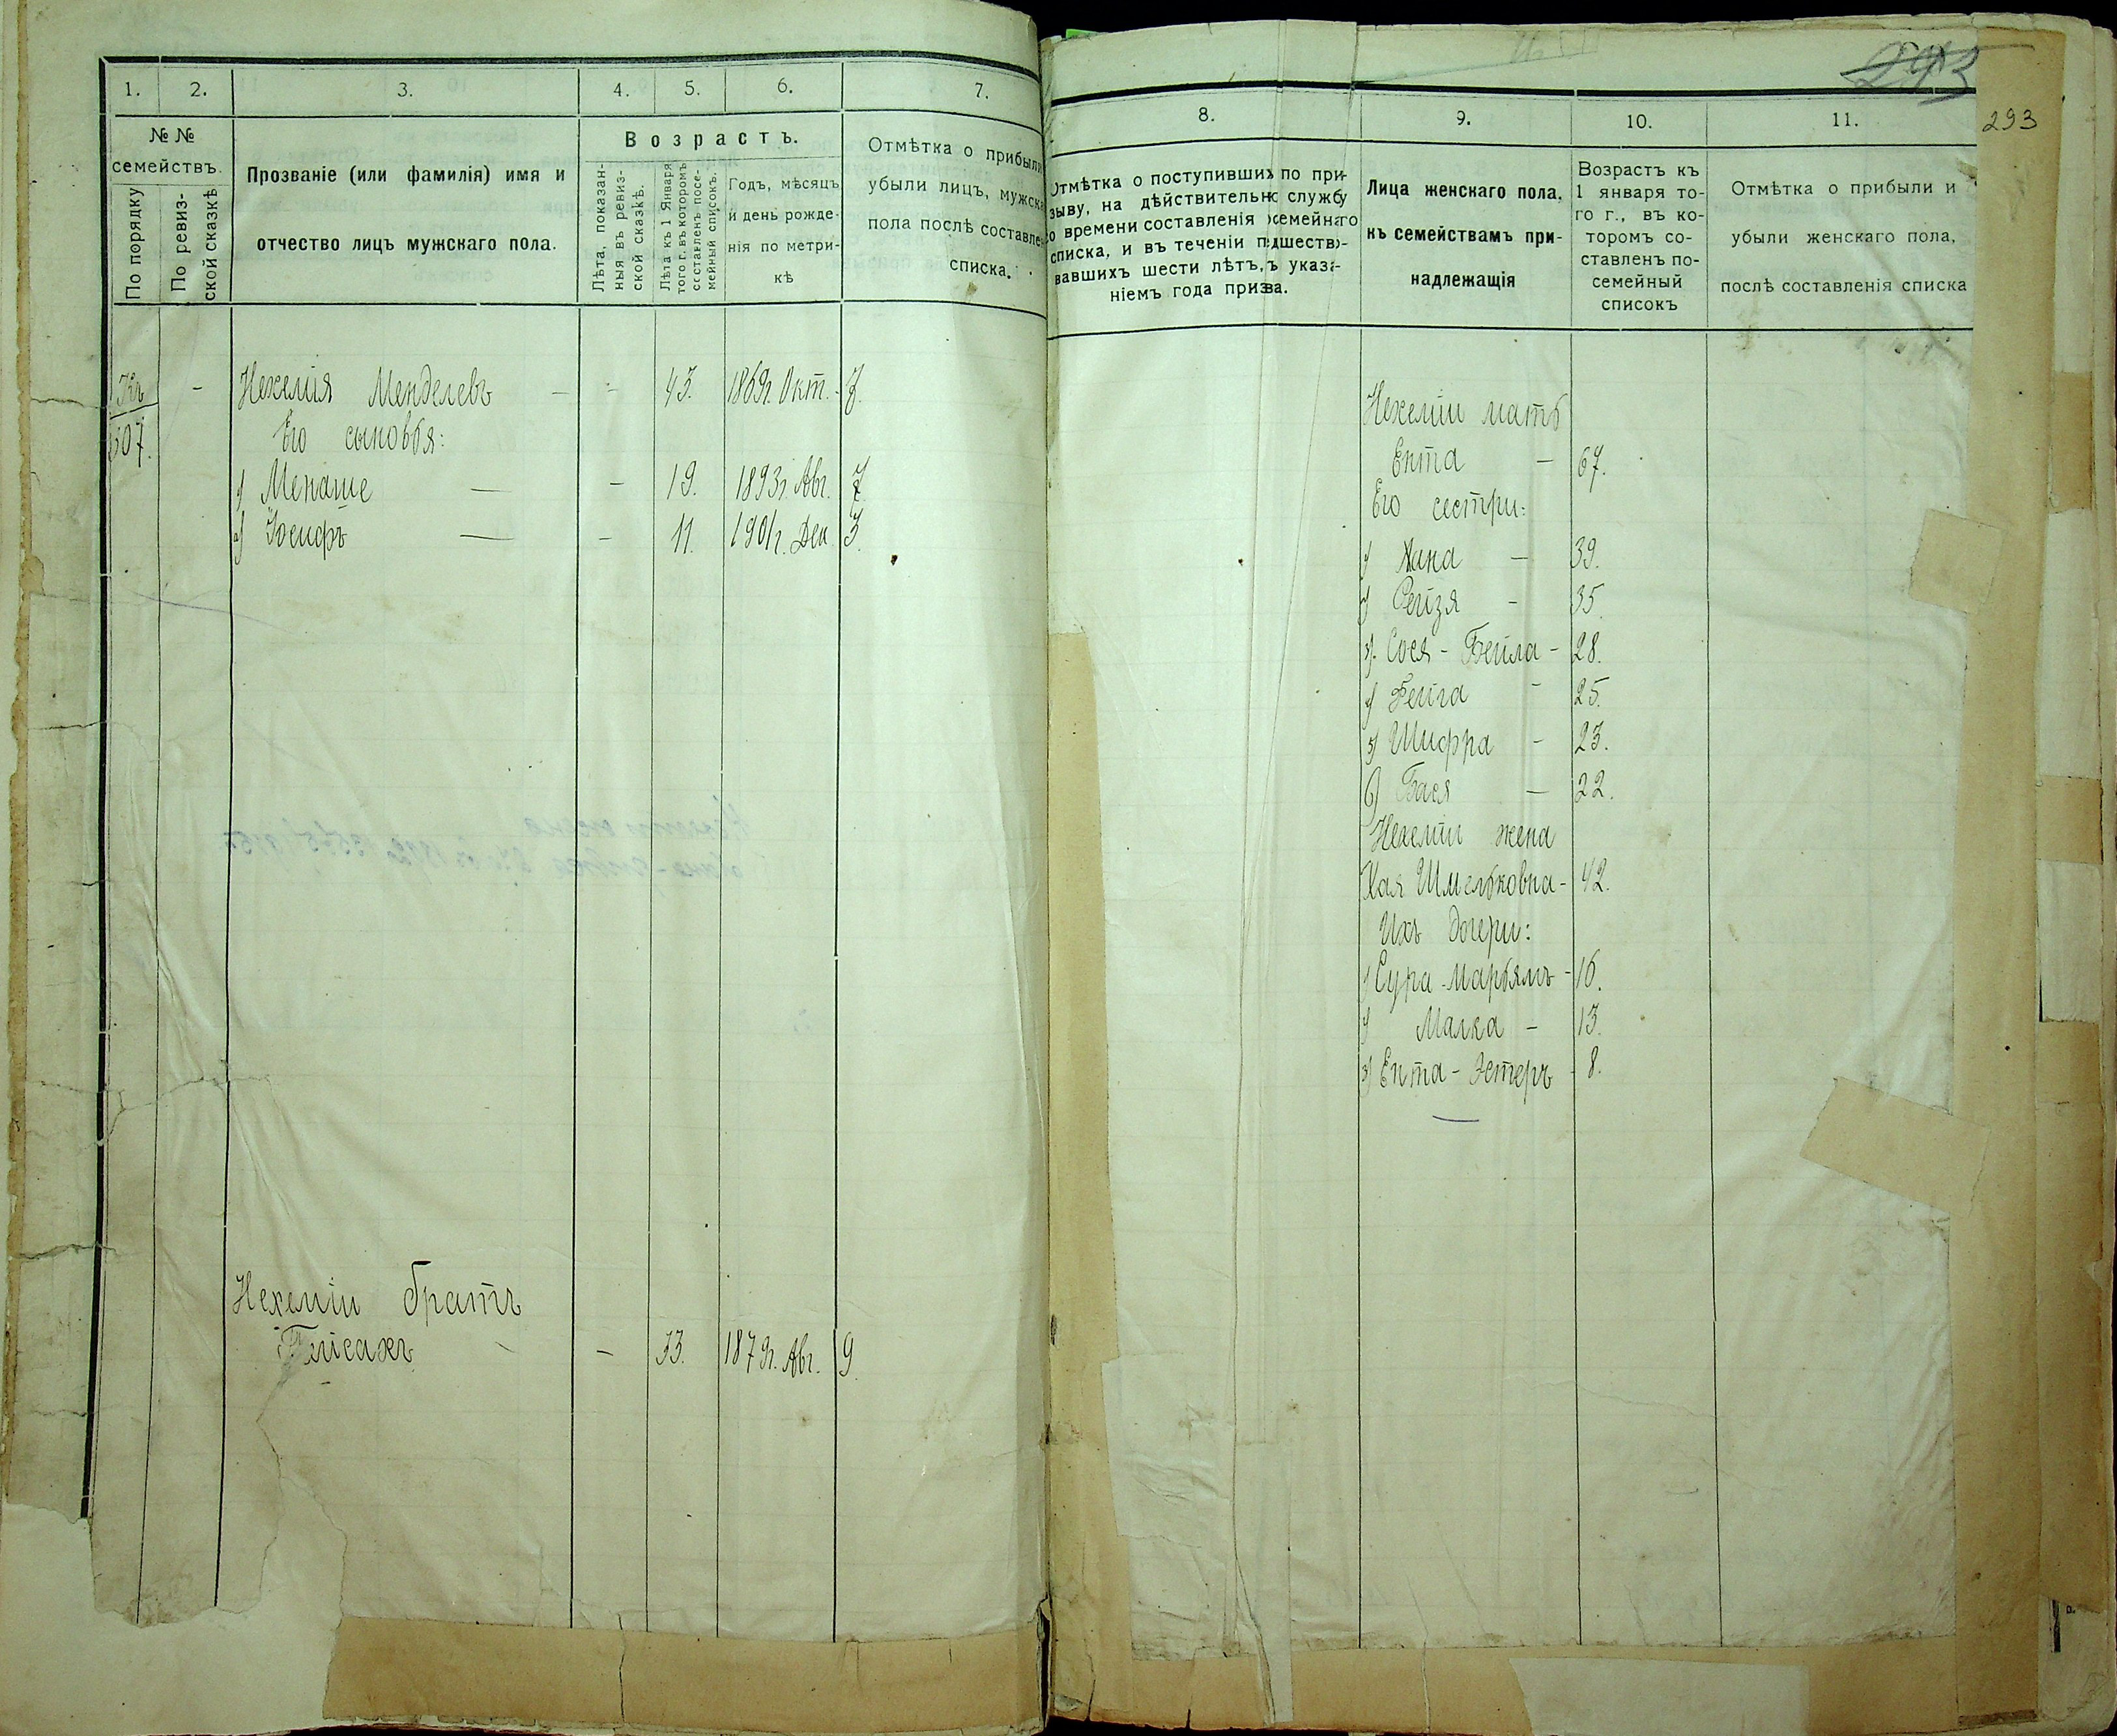 293
293
1. 2. 3. 4. 5. 6. 7.
№ №
семействъ.
По порядку
По ревиз-
ской сказкѣ
Прозваніе (или фамилія) имя и
отчество лицъ мужскаго пола.
Возрастъ.
Лѣта, показан-
ныя въ ревиз-
ской сказкѣ.
Лѣта къ 1 Января
того г. въ которомъ
составленъ посе-
мейный списокъ.
Годъ, мѣсяцъ
и день рожде-
нія по метри-
кѣ
Отмѣтка о прибыли
убыли лицъ, мужска
пола послѣ составле-
списка.
Нехемія Менделевъ - - 43. 1869г. Окт. 7.
307.
Его сыновья:
1) Менаше — - 19. 1893г. Авг. 7.
2) Іосифъ — - 11. 1901г. Дек. 3.
Нехеміи братъ
Пейсахъ - 33. 1879г. Авг. 9.
8. 9. 10. 11.
Отмѣтка о поступившихъ по при-
зыву, на дѣйствительно службу
о времени составленія семейнаго
списка, и въ теченіи пдшество-
вавшихъ шести лѣтъ, ъ указа-
ніемъ года призва.
Лица женскаго пола,
къ семействамъ при-
надлежащія
Возрастъ къ
1 января то-
го г., въ ко-
торомъ со-
ставленъ по-
семейный
списокъ
Отмѣтка о прибыли и
убыли женскаго пола,
послѣ составленія списка
Нехеміи мать
Ента — 67.
Его сестри:
1) Хана — 39.
2) Рейзя - 35.
3) Сося - Бейла - 28.
4) Фейга - 25.
5) Шифра - 23.
6) Бася — 22.
Нехеміи жена
Хая Шмельковна - 42.
Ихъ дочери:
1) Сура-Марьямъ - 16.
2) Малка - 13.
3) Ента - Эстеръ - 8.